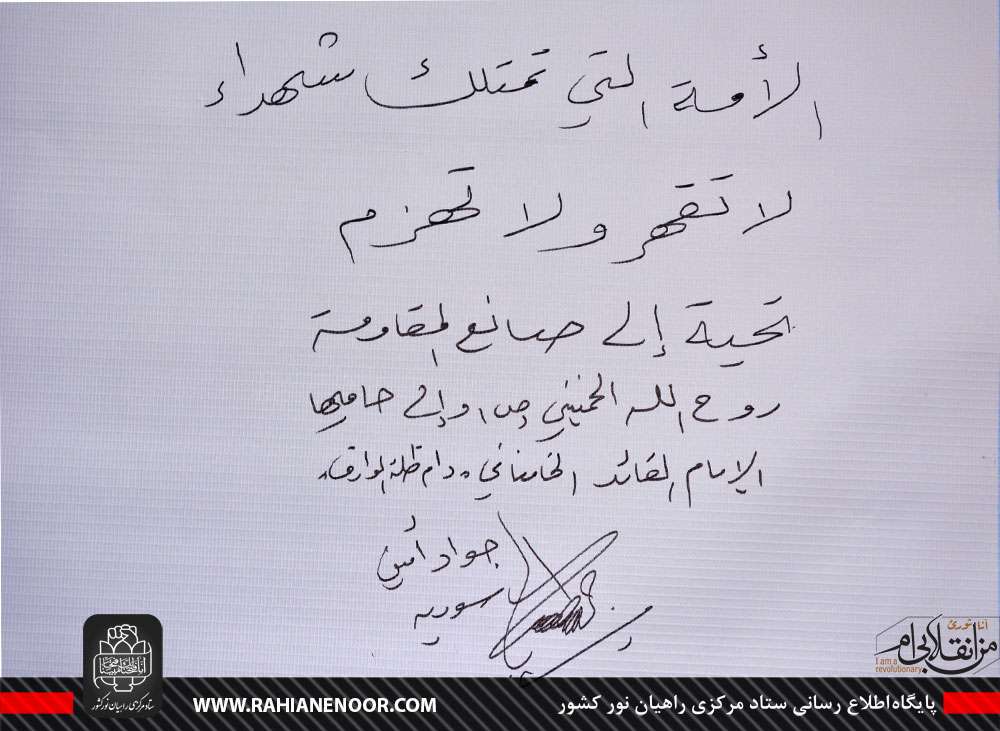 الأمة التي تمتلك شهداء
لا تقهر ولا تهزم
تحية إلى صانع المقاومة
روح الله الخميني (ص) وإلى حاميها
الإمام القائد الخامنائي "دام ظله الوارف"
جواد أمين
سورية
انا ثوری
من انقلابی ام
I am a revolutionary
ستاد مرکزی راهیان نور کشور
WWW.RAHIANENOOR.COM
پایگاه اطلاع رسانی ستاد مرکزی راهیان نور کشور